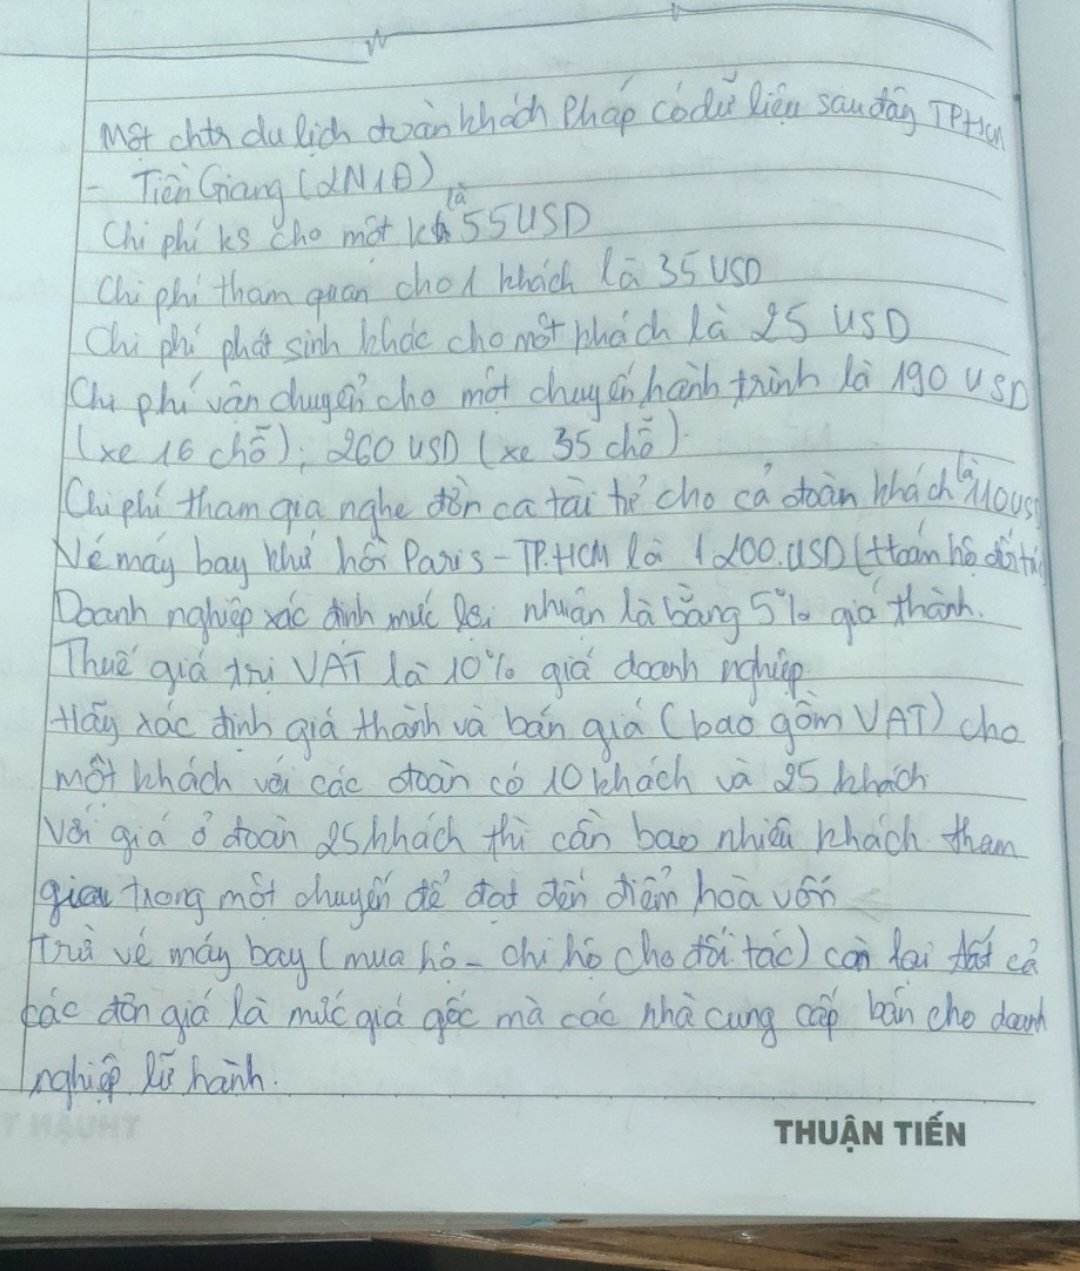 Một chtr du lịch đoàn khách Pháp có dữ liệu sau đây TPHCM
- Tiền Giang (2N1Đ)
Chi phí ks cho một kh là 55 USD
Chi phí tham quan cho 1 khách là 35 USD
Chi phí phát sinh khác cho một khách là 25 USD
Chi phí vận chuyển cho một chuyến hành trình là 190 USD
(xe 16 chỗ); 260 USD (xe 35 chỗ).
Chi phí tham gia nghe đờn ca tài tử cho cả đoàn khách là 110 USD
Vé máy bay khứ hồi Paris - TP.HCM là 1200.USD (
Doanh nghiệp xác định mức lợi nhuận là bằng 5% giá thành.
Thuế giá trị VAT là 10% giá doanh nghiệp
Hãy xác định giá thành và bán giá (bao gồm VAT) cho
một khách với các đoàn có 10 khách và 25 khách
Với giá ở đoàn 25 khách thì cần bao nhiêu khách tham
gia trong một chuyến để đạt đến điểm hoà vốn
trừ vé máy bay (mua hộ - chi hộ cho đối tác) còn lại tất cả
các đơn giá là mức giá gốc mà các nhà cung cấp bán cho doanh
nghiệp lữ hành.
THUẬN TIẾN